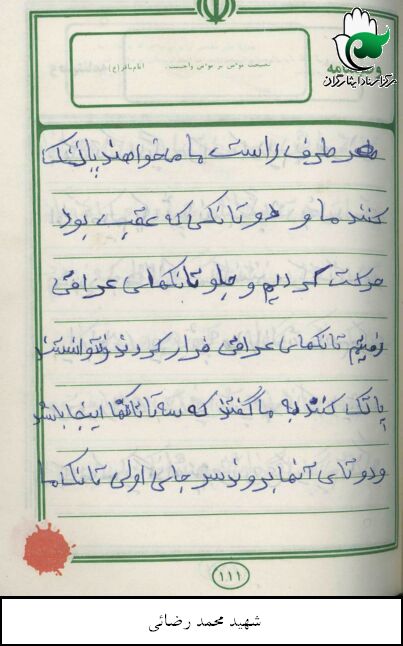 وصیتنامه
مرکز اسناد ایثارگران
نصیحت مؤمن بر مؤمن واجبست. امام باقر(ع)
طرف راست ما میخواهند پاتک
کنند ما و دو تانکی که عقب بود
حرکت کردیم و جلو تانکهای عراقی
رفتیم تانکهای عراقی فرار کردند و نتوانستند
پاتک کنند به ما گفتند که سه تا تانکها اینجا باشد
و دو تای آنها بروند سر جای اولی تانک ما
۱۱۱
شهید محمد رضائی